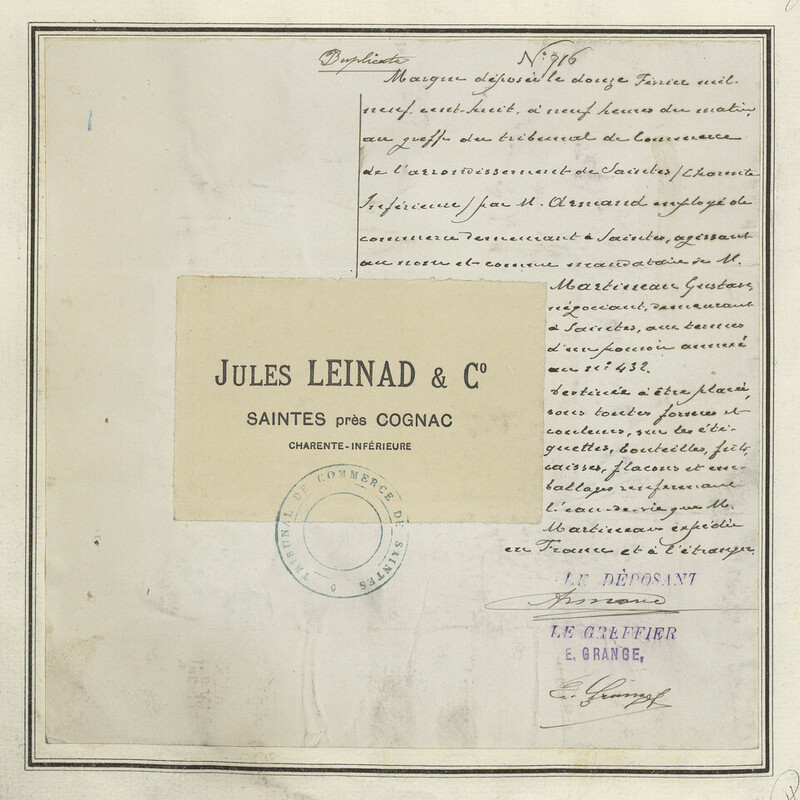 Duplicata
N° 916
Marque déposée le douze Février mil
neuf cent-huit, à neuf heures du matin,
au greffe du tribunal de Commerce
de l'arrondissement de Saintes /Charente
Inférieure/ par M. Armand employé de
commerce demeurant à Saintes, agissant
au nom et comme mandataire de M.
Martineau Gustave
négociant, demeurant
à Saintes, aux termes
d'un pouvoir annexé
au n° 432.
Destinée à être placée,
sous toutes formes et
couleurs, sur les éti-
quettes, bouteilles, fûts,
caisses, flacons et em-
ballages renfermant
l'eau-de-vie que M.
Martineau expédie
en France et à l'étranger.
JULES LEINAD & Cº
SAINTES près COGNAC
CHARENTE-INFÉRIEURE
TRIBUNAL DE COMMERCE DE SAINTES
LE DÉPOSANT
Armand
LE GREFFIER
E. GRANGE,
E. Grange